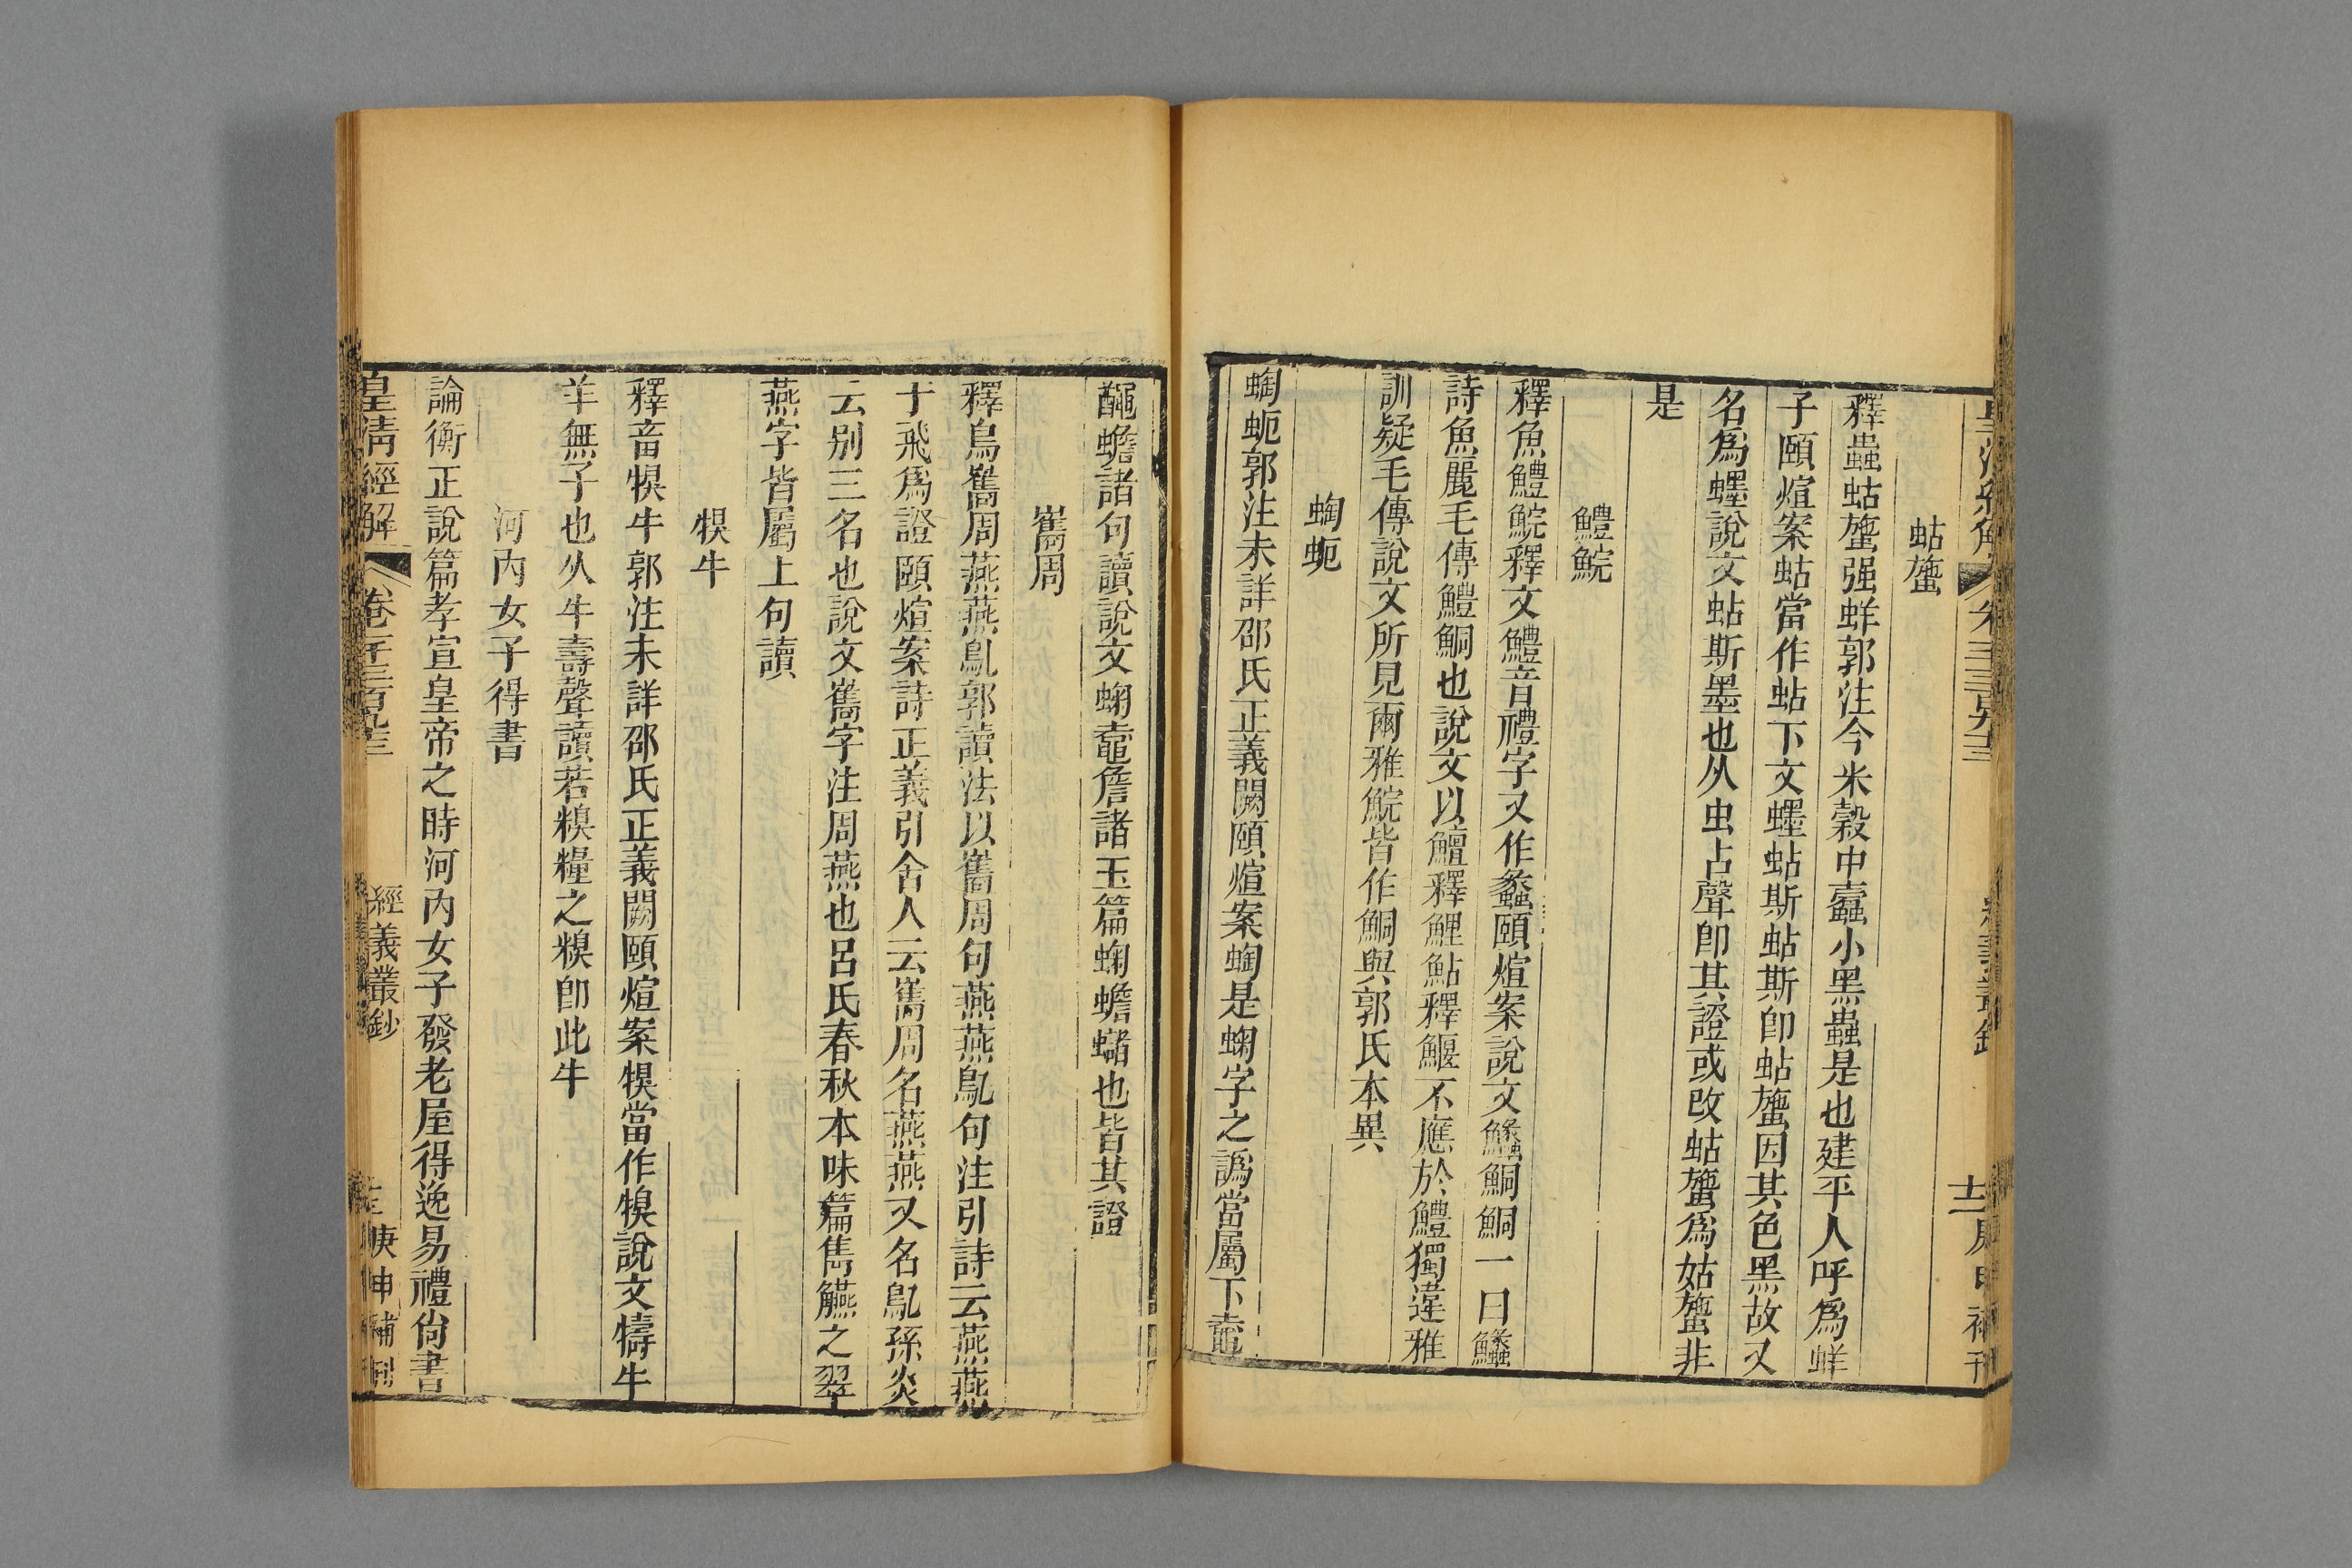 蛄䗐
釋蟲蛄䗐强蛘郭注今米榖中蠹小黑蟲是也建平人呼爲蛘
子頤煊案蛄當作䖡下文蟔䖡斯䖡斯卽䖡䗐因其色黑故又
名爲蟔說文䖡斯墨也从虫占聲卽其證或改蛄䗐爲姑䗐非
是
鱧鯇
釋魚鱧鯇釋文鱧音禮字又作蠡頤煊案說文鱺鮦鮦一曰鱺
詩魚麗毛傳鱧鮦也說文以鱣釋鯉鮎釋鰋不應於鱧獨違雅
訓疑毛傳說文所見爾雅鯇皆作鮦與郭氏本異
蜪蚅
蜪蚅郭注未詳邵氏正義闕頤煊案蜪是蜠字之譌當屬下鼀
䵶蟾諸句讀說文蜠鼀詹諸玉篇蜠蟾蠩也皆其證
巂周
釋鳥巂周燕燕鳦郭讀法以巂周句燕燕鳦句注引詩云燕燕
于飛爲證頤煊案詩正義引舍人云巂周名燕燕又名鳦孫炎
云别三名也說文巂字注周燕也呂氏春秋本味篇雋觾之翠
燕字皆屬上句讀
犑牛
釋畜犑牛郭注未詳邵氏正義闕頤煊案犑當作㹎說文㹗牛
羊無子也从牛壽聲讀若糗糧之糗卽此牛
河內女子得書
論衡正說篇孝宣皇帝之時河內女子發老屋得逸易禮尙書
皇清經解
卷一千三百九十三
經義叢鈔
庚申補刊